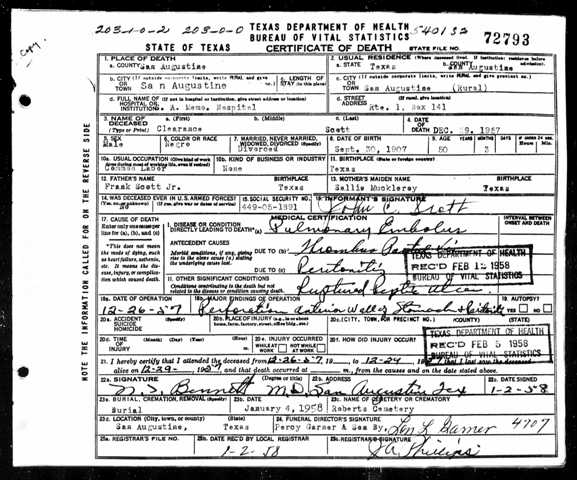 203-10-2 203-0-0 TEXAS DEPARTMENT OF HEALTH 540132
BUREAU OF VITAL STATISTICS
STATE OF TEXAS CERTIFICATE OF DEATH STATE FILE NO. 72793
Copy
NOTE THE INFORMATION CALLED FOR ON THE REVERSE SIDE
1. PLACE OF DEATH 2. USUAL RESIDENCE (Where deceased lived. If institution: residence before admission)
a. COUNTY San Augustine a. STATE Texas b. COUNTY San Augustine
b. CITY (If outside corporate limits, write RURAL and give precinct no.) c. LENGTH OF STAY (in this place) c. CITY (If outside corporate limits, write RURAL and give precinct no.)
OR TOWN Sa n Augustine OR TOWN San Augustine (Rural)
d. FULL NAME OF (If not in hospital or institution, give street address or location) d. STREET ADDRESS (If rural, give location)
HOSPITAL OR INSTITUTION A. Memo. Hospital Rte. 1, Box 141
3. NAME OF DECEASED a. (First) b. (Middle) c. (Last) 4. DATE OF DEATH
(Type or Print) Clearance Scott DEC. 29, 1957
5. SEX 6. COLOR OR RACE 7. MARRIED, NEVER MARRIED, WIDOWED, DIVORCED (Specify) 8. DATE OF BIRTH 9. AGE Years Months Days
Male Negro Divorced Sept. 30, 1907 50 3
10a. USUAL OCCUPATION (Give kind of work done during most of working life, even if retired) 10b. KIND OF BUSINESS OR INDUSTRY 11. BIRTHPLACE (State or foreign country)
Common Labor None Texas
12. FATHER'S NAME 13. MOTHER'S MAIDEN NAME
Frank Scott Jr. Texas Sallie Muckleroy Texas
14. WAS DECEASED EVER IN U.S. ARMED FORCES? 15. SOCIAL SECURITY NO. 16. INFORMANT'S SIGNATURE
(Yes, no, or unknown) (If yes, give war or dates of service) No 449-05-1991 John C. Scott
17. CAUSE OF DEATH MEDICAL CERTIFICATION INTERVAL BETWEEN ONSET AND DEATH
Enter only one cause per line for (a), (b), and (c)
I. DISEASE OR CONDITION DIRECTLY LEADING TO DEATH*(a) Pulmonary Embolus
*This does not mean the mode of dying, such as heart failure, asthenia, etc. It means the disease, injury, or complication which caused death.
ANTECEDENT CAUSES
Morbid conditions, if any, giving rise to the above cause (a) stating the underlying cause last.
DUE TO (b) Thrombus
DUE TO (c) Peritonitis
TEXAS DEPARTMENT OF HEALTH
REC'D FEB 12 1958
BUREAU OF VITAL STATISTICS
II. OTHER SIGNIFICANT CONDITIONS
Conditions contributing to the death but not related to the disease or condition causing death.
Ruptured Peptic Ulcer
18a. DATE OF OPERATION 18b. MAJOR FINDINGS OF OPERATION 19. AUTOPSY?
12-26-57 Perforation anterior wall of Stomach & Peritonitis YES NO
20a. ACCIDENT SUICIDE HOMICIDE (Specify) 20b. PLACE OF INJURY (e.g., in or about home, farm, factory, street, office bldg., etc.) 20c. (CITY, TOWN, OR PRECINCT NO.) (COUNTY) (STATE)
20d. TIME OF INJURY (Month) (Day) (Year) (Hour) 20e. INJURY OCCURRED WHILE AT WORK NOT WHILE AT WORK 20f. HOW DID INJURY OCCUR?
TEXAS DEPARTMENT OF HEALTH
REC'D FEB 5 1958
BUREAU OF VITAL STATISTICS
21. I hereby certify that I attended the deceased from 12-26-57, 19 to 12-29
alive on 12-29- 1957 and that death occurred at m., from the causes and on the date stated above.
22a. SIGNATURE (Degree or title) 22b. ADDRESS 22c. DATE SIGNED
Bennett M.D. San Augustine Tex 1-2-58
23a. BURIAL, CREMATION, REMOVAL (Specify) 23b. DATE 23c. NAME OF CEMETERY OR CREMATORY
Burial January 4, 1958 Roberts Cemetery
23d. LOCATION (City, town, or county) (State) 24. FUNERAL DIRECTOR'S SIGNATURE
San Augustine, Texas Percy Garner & Son By Garner 4707
25a. REGISTRAR'S FILE NO. 25b. DATE REC'D BY LOCAL REGISTRAR 25c. REGISTRAR'S SIGNATURE
1-2-58 Phillips